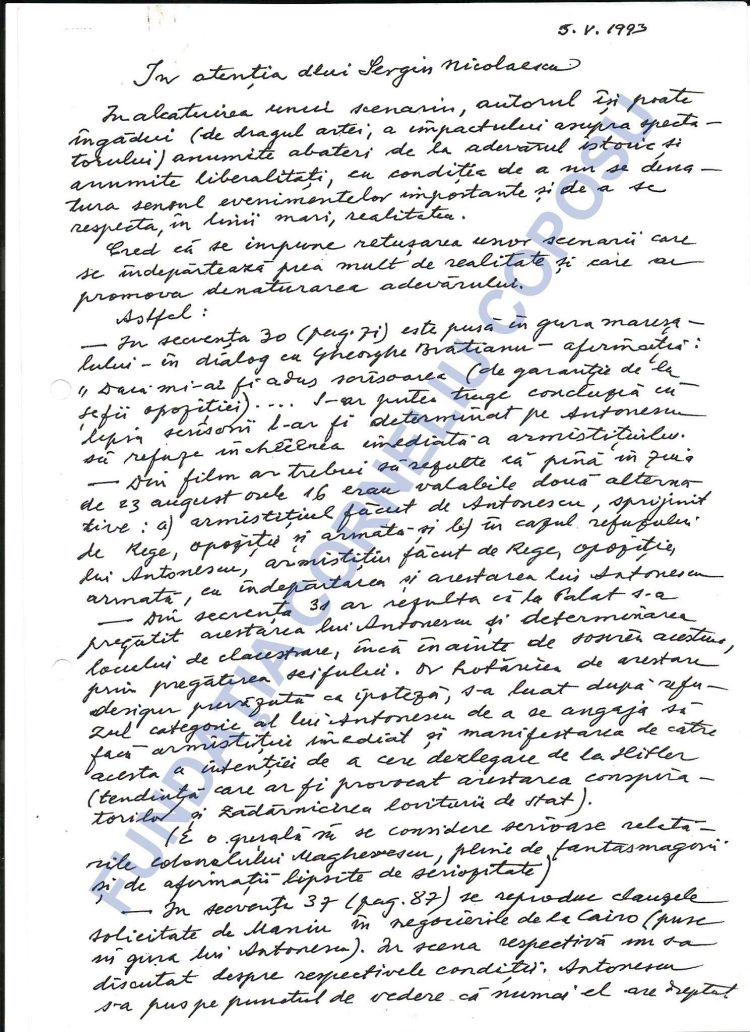 5.V.1993
In atenția dlui Sergiu Nicolaescu
In alcătuirea unui scenariu, autorul își poate
îngădui (de dragul artei, a impactului asupra specta-
torului) anumite abateri de la adevărul istoric și
anumite libertăți, cu condiția de a nu se dena-
tura sensul evenimentelor importante și de a se
respecta, în linii mari, realitatea.
Cred că se impune retușarea unor scenarii care
se îndepărtează prea mult de realitate și care ar
promova denaturarea adevărului.
Astfel:
— In secvența 30 (pag. 71) este pusă în gura mareșa-
lului - în dialog cu Gheorghe Brătianu - afirmația:
"Dacă mi-ai fi adus scrisoarea (de garanție de la
șefii opoziției).... S-ar putea trage concluzia că
lipsa scrisorii l-ar fi determinat pe Antonescu
să refuze încheierea imediată a armistițiului.
— Din film ar trebui să rezulte că pînă în ziua
de 23 august orele 16 erau valabile două alterna-
tive: a) armistițiul făcut de Antonescu, sprijinit
de Rege, opoziție și armată și b) în cazul refuzului
lui Antonescu, armistițiu făcut de Rege, opoziție,
armată, cu îndepărtarea și arestarea lui Antonescu
— Din secvența 31 ar rezulta că la Palat s-a
pregătit arestarea lui Antonescu și determinarea
locului de claustrare, încă înainte de sosirea acestuia,
prin pregătirea seifului. Or hotărîrea de arestare
desigur prevăzută ca ipoteză, s-a luat după refu-
zul categoric al lui Antonescu de a se angaja să
facă armistițiu imediat și manifestarea de către
acesta a intenției de a cere dezlegare de la Hitler
(tendință care ar fi provocat arestarea conspira-
torilor și zădărnicirea loviturii de stat).
(E o greșală să se considere serioase relată-
rile colonelului Magherescu, pline de fantasmagorii
și de afirmații lipsite de seriozitate)
— In secvența 37 (pag. 87) se reproduc clauzele
solicitate de Maniu în negocierile de la Cairo (puse
în gura lui Antonescu). In scena respectivă nu s-a
discutat despre respectivele condiții. Antonescu
s-a pus pe punctul de vedere că numai el are dreptul
FUNDAȚIA CORNELIU COPOSU